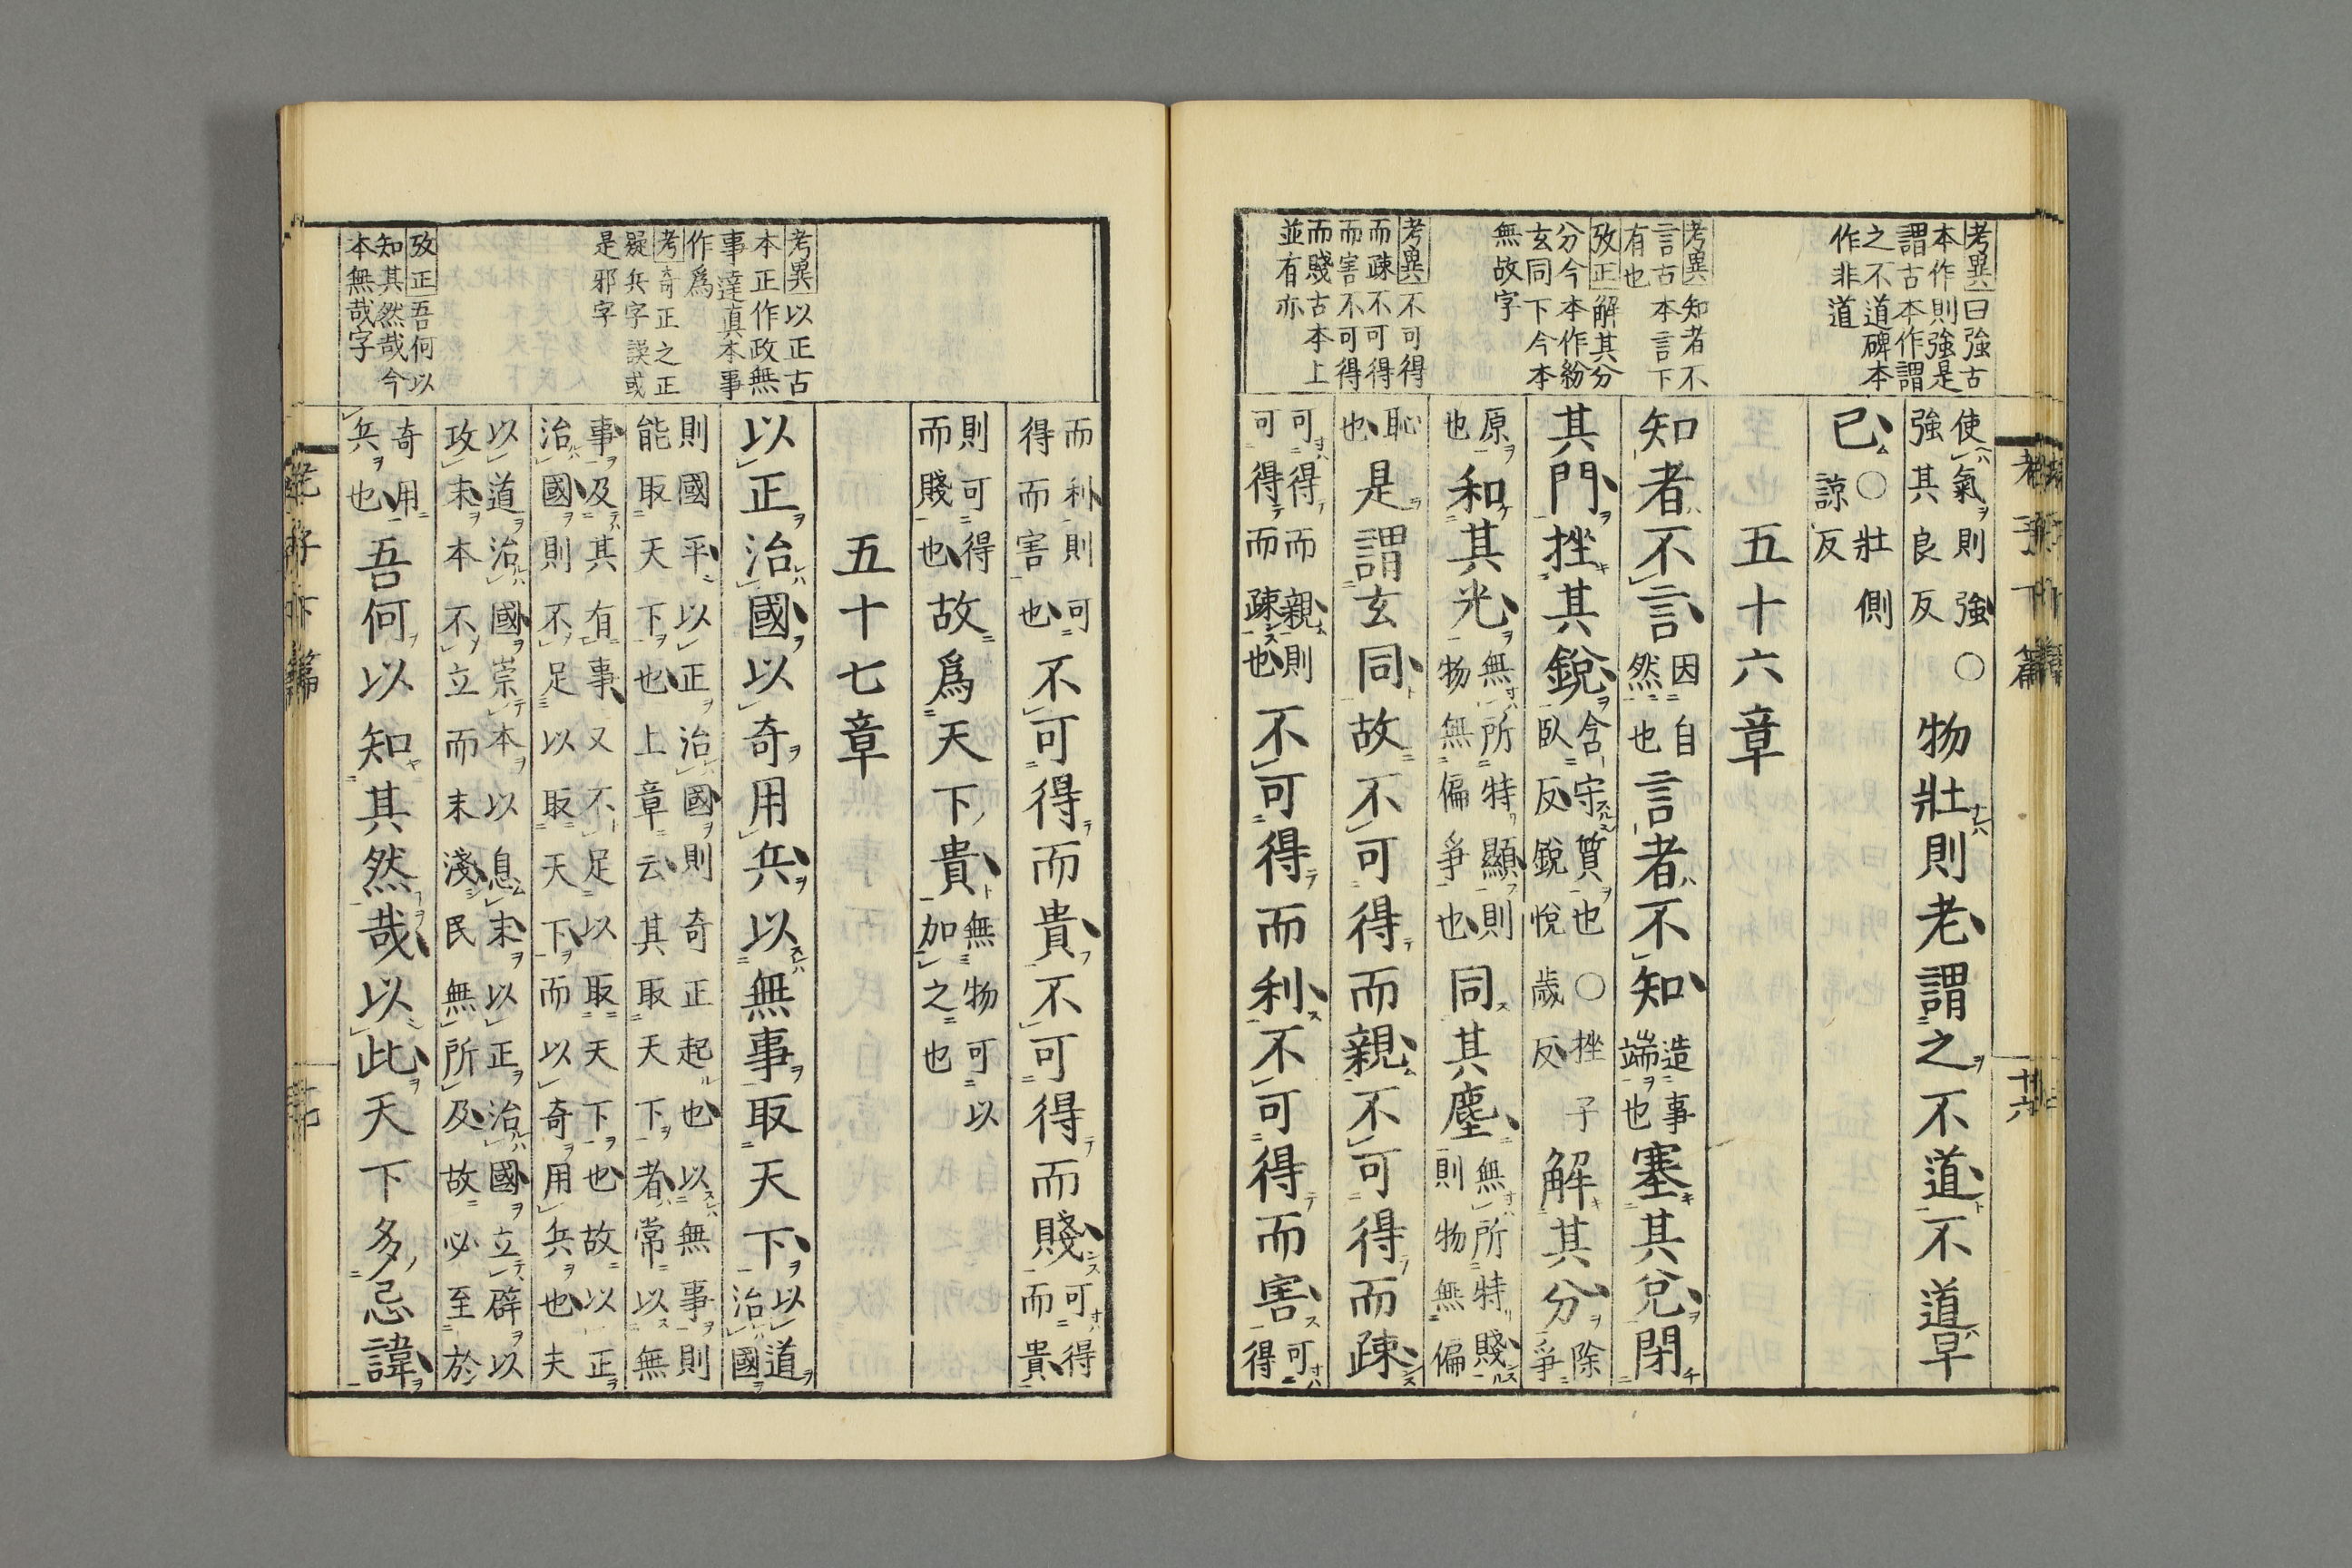 考異曰強古
本作則強是
謂古本作謂
之不道碑本
作非道
考異知者不
言古本言下
有也
攷正解其分
分今本作紛
玄同下今本
無故字
考異不可得
而疎不可得
而害不可得
而賤古本上
並有亦
使氣則強○強其良反物壯則老謂之不道不道早
已○壯側諒反
五十六章
知者不言因自然也言者不知造事端也塞其兌閉
其門挫其銳含守質也○挫子臥反銳悅歲反解其分除爭
原也和其光無所特顯則物無偏爭也同其塵無所特賤則物無偏
恥也是謂玄同故不可得而親不可得而疎
可得而親則可得而疎也不可得而利不可得而害可得
考異以正古
本正作政無
事達真本事
作爲
考奇正之正
疑兵字誤或
是邪字
攷正吾何以
知其然哉今
本無哉字
而利則可得而害也不可得而貴不可得而賤可得而貴
則可得而賤也故爲天下貴無物可以加之也
五十七章
以正治國以奇用兵以無事取天下以道治國
則國平以正治國則奇正起也以無事則能取天下也上章云其取天下者常以無
事及其有事又不足以取天下也故以正治國則不足以取天下而以奇用兵也夫
以道治國崇本以息末以正治國立辟以攻末本不立而末淺民無所及故必至於
奇用兵也吾何以知其然哉以此天下多忌諱
老子下篇